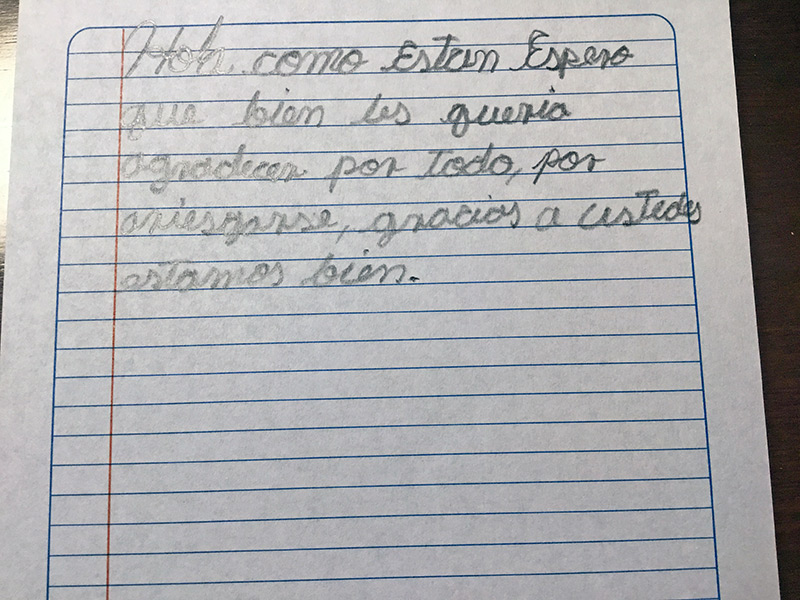 Hola como Estan Espero
que bien les queria
agradecer por todo, por
ariesgarse, gracias a ustedes
estamos bien.